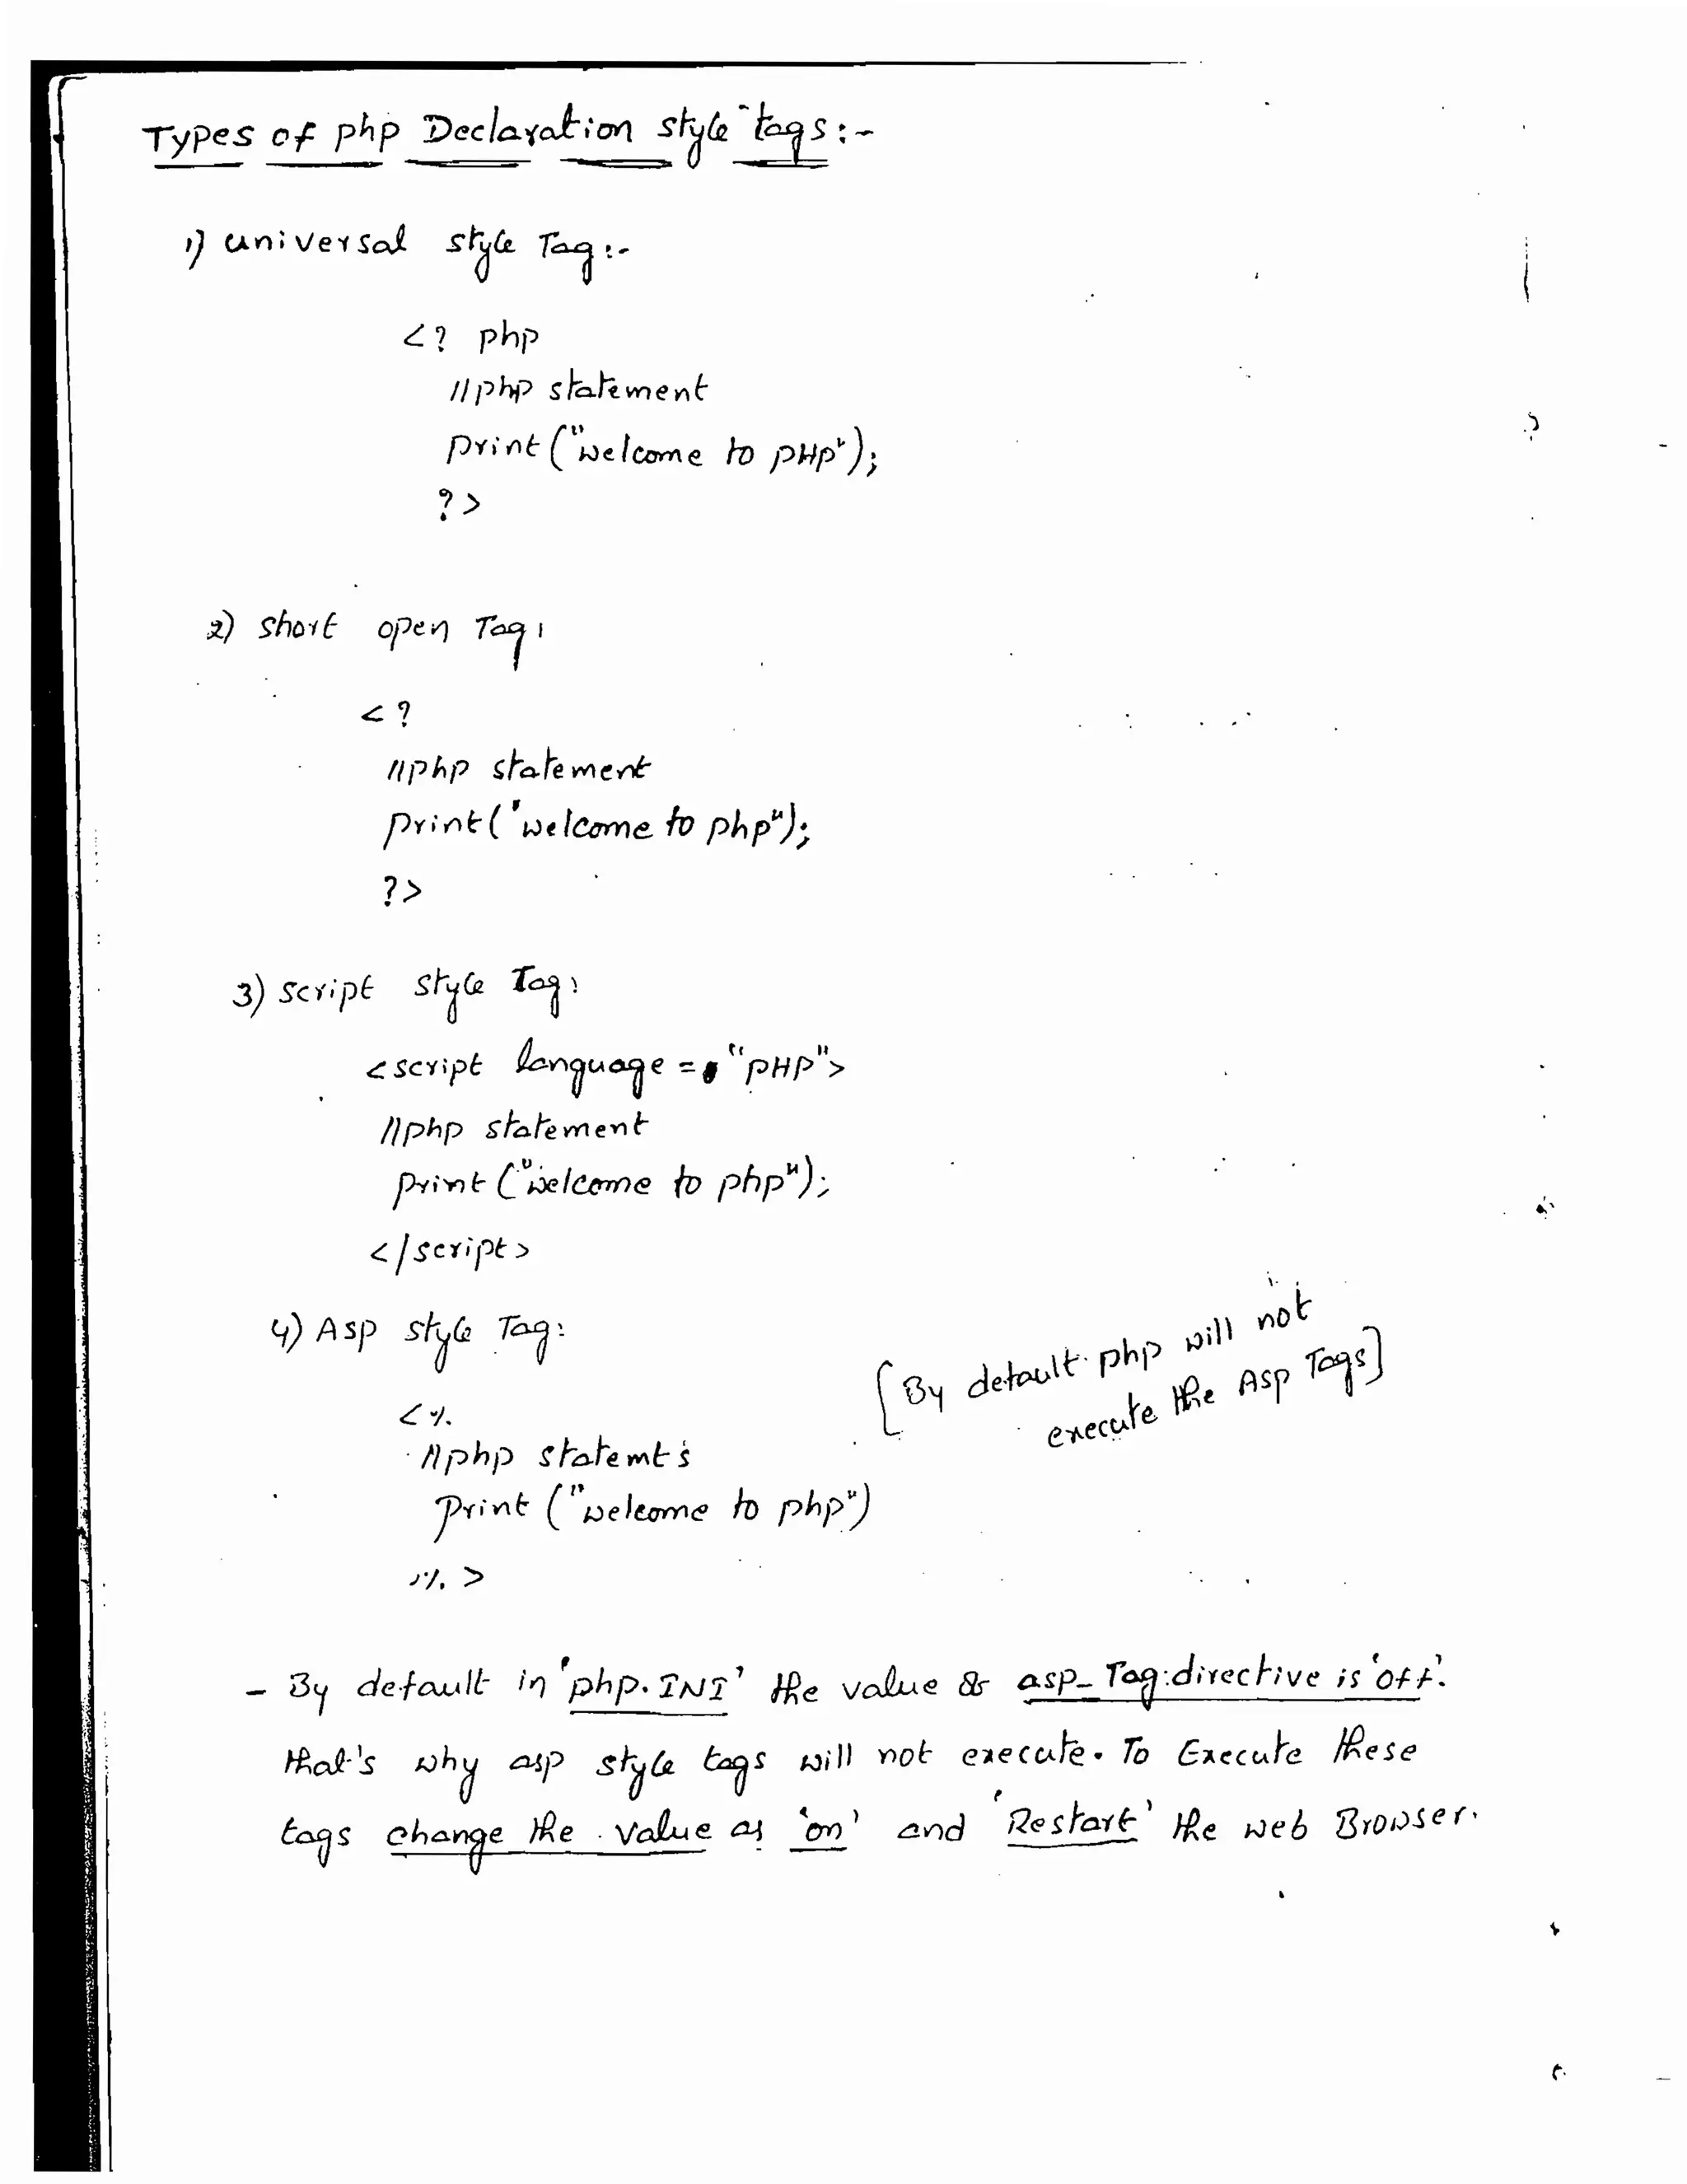 Types of php Declaration style tags :-
1) universal style Tag :-
<? php
//php statement
print ("welcome to PHP");
?>
2) short open Tag :
<?
//php statement
print ("welcome to php");
?>
3) script style Tag :
<script language = "PHP">
//php statement
print ("welcome to php");
</script>
4) Asp style Tag :
[By default php will not
execute the Asp Tags]
<%
//php statemt's
print ("welcome to php")
%>
- By default in 'php.INI' the value & asp_Tag directive is 'off'.
that's why asp style tags will not execute. To Execute these
tags change the value as 'on' and 'Restart' the web Browser.